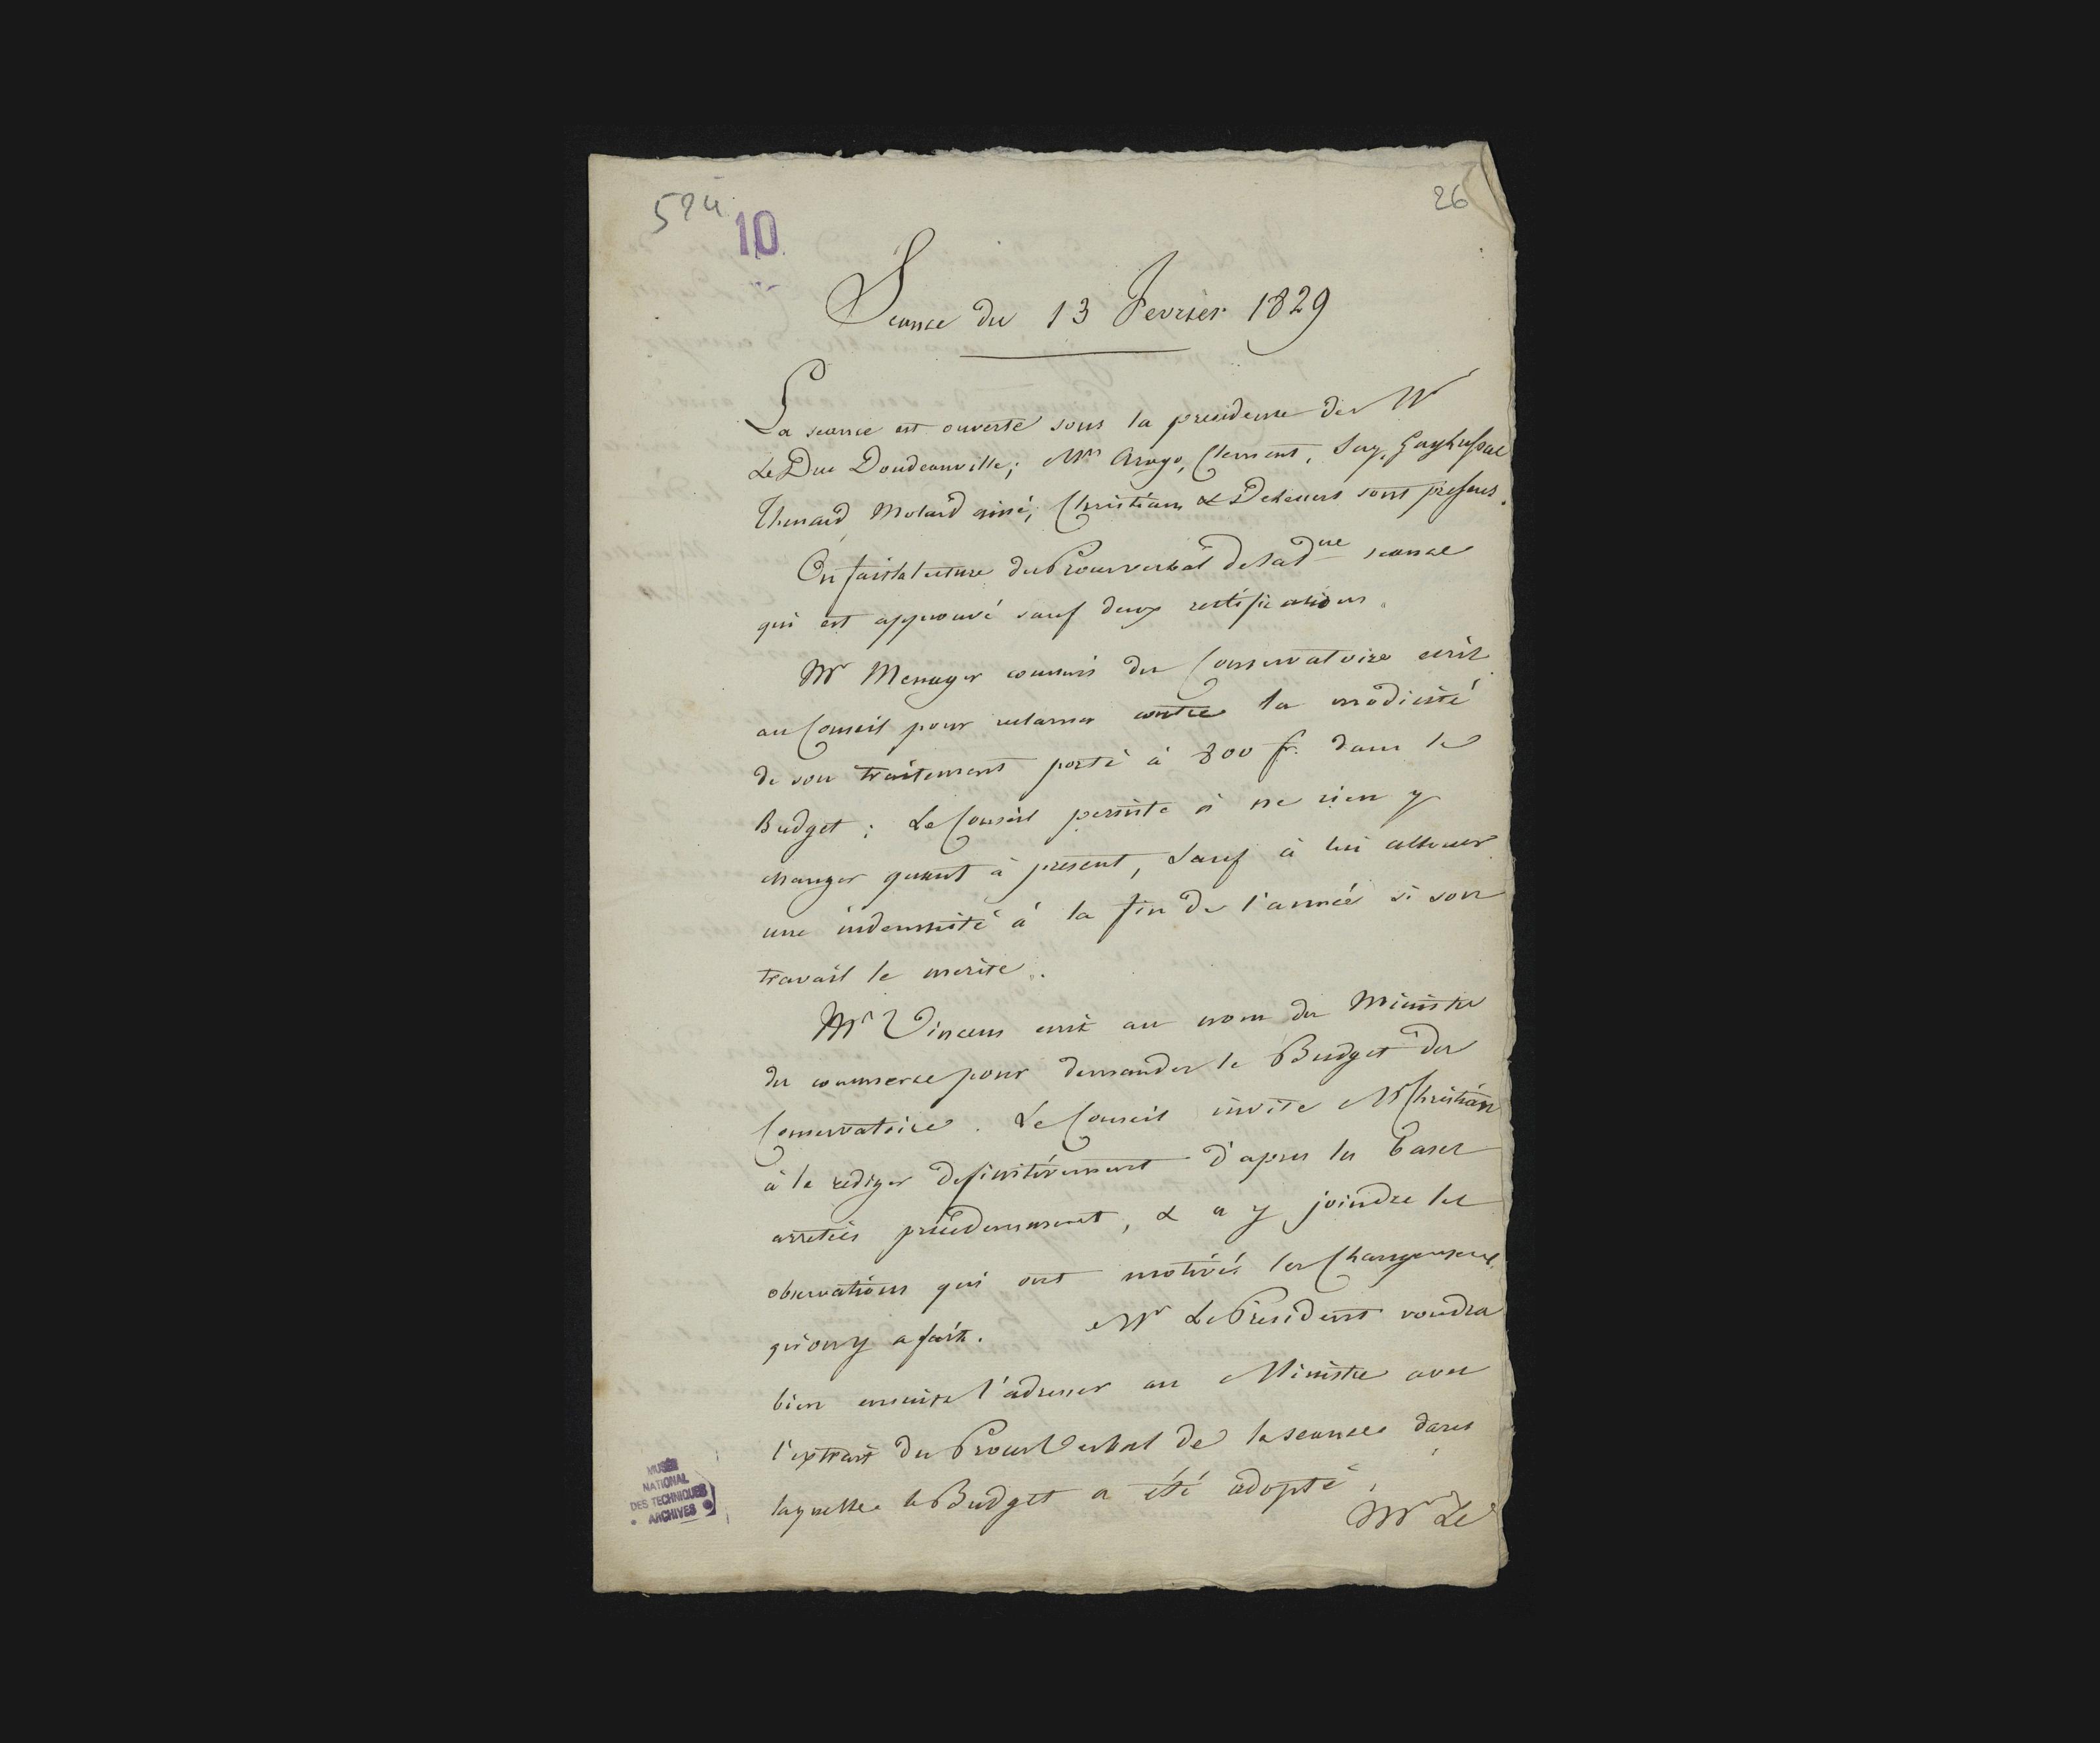 524
10
26
Seance du 13 Fevrier 1829
La seance est ouverte sous la presidence de Mr
Le Duc Doudeauville; Mrs Arago, Clement, Say, Gaylussac
Thenard, Molard ainé, Christian & Delessert sont presens.
On fait la lecture du Procès verbal de la dre seance
qui est approuvé sauf deux rectifications.
Mr Menager commis du Conservatoire ecrit
au Conseil pour reclamer contre la modicité
de son traitement porté à 800 fr. dans le
Budget; Le Conseil persiste à ne rien y
changer quant à present, sauf à lui allouer
une indemnité à la fin de l'année si son
travail le merite.
Mr Vincens ecrit au nom du Ministre
du commerce pour demander le Budget du
Conservatoire. Le Conseil invite Mr Christian
à le rediger definitivement d'apres les bases
arretées précédemment, & a y joindre les
observations qui ont motivé les Changemens
qu'on y a fait. Mr Le President voudra
bien ensuite l'adresser au Ministre avec
l'extrait du Proces Verbal de la seance dans
laquelle le Budget a été adopté.
Mr Le
MUSÉE
NATIONAL
DES TECHNIQUES
ARCHIVES